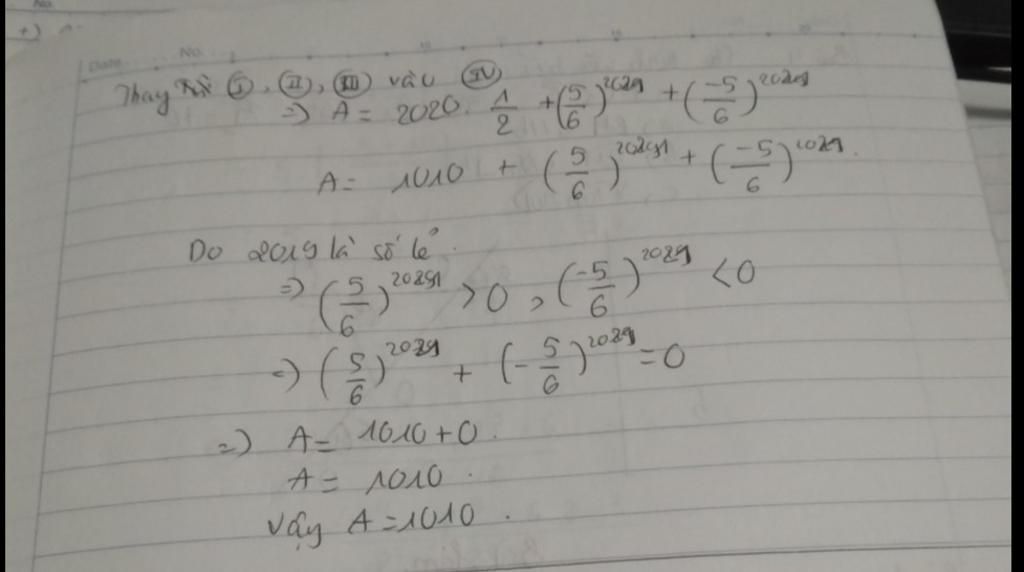 Thay (I), (II), (III) vào (IV)
=) A = 2020. 1/2 + (5/6)^2021 + (-5/6)^2021
A = 1010 + (5/6)^2021 + (-5/6)^2021.
Do 2019 là số lẻ.
=) (5/6)^2021 > 0, (-5/6)^2021 < 0
=) (5/6)^2021 + (-5/6)^2021 = 0
=) A = 1010 + 0.
A = 1010.
Vậy A = 1010.